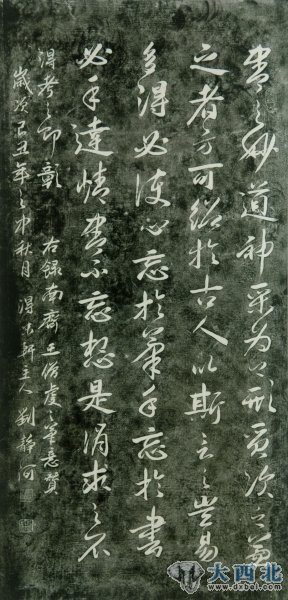 書之妙道神采為上形質次之兼
之者方可紹於古人以斯言之豈易
多得必使心忘於筆手忘於書
心手達情書不忘想是謂求之不
得考之即彰 右錄南齊王僧虔之筆意贊
歲次己丑年之中秋月 軒主人 劉靜河
大西北